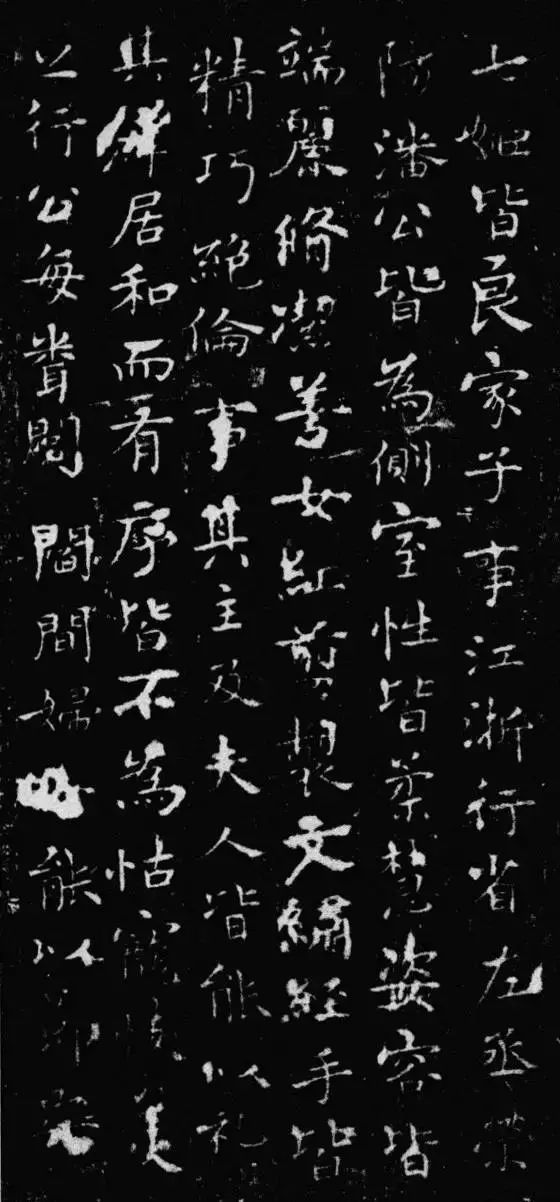 七姬皆良家子事江浙行省左丞滎
陽潘公皆為側室性皆柔慧姿容皆
端麗脩潔善女紅剪製文繡經手皆
精巧絕倫事其主及夫人皆能以礼
其羣居和而有序皆不為怙寵忮美
之行公每閻間婦能以節